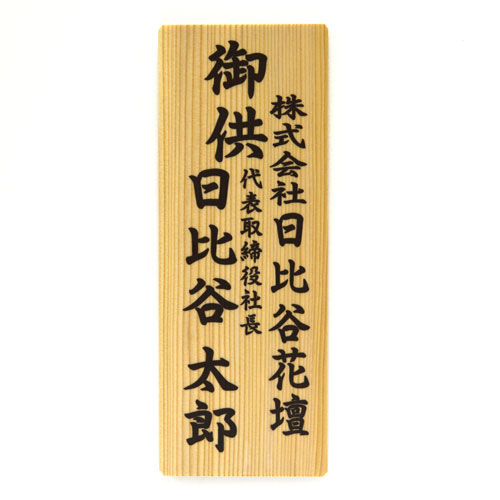 御供
株式会社日比谷花壇
代表取締役社長
日比谷太郎